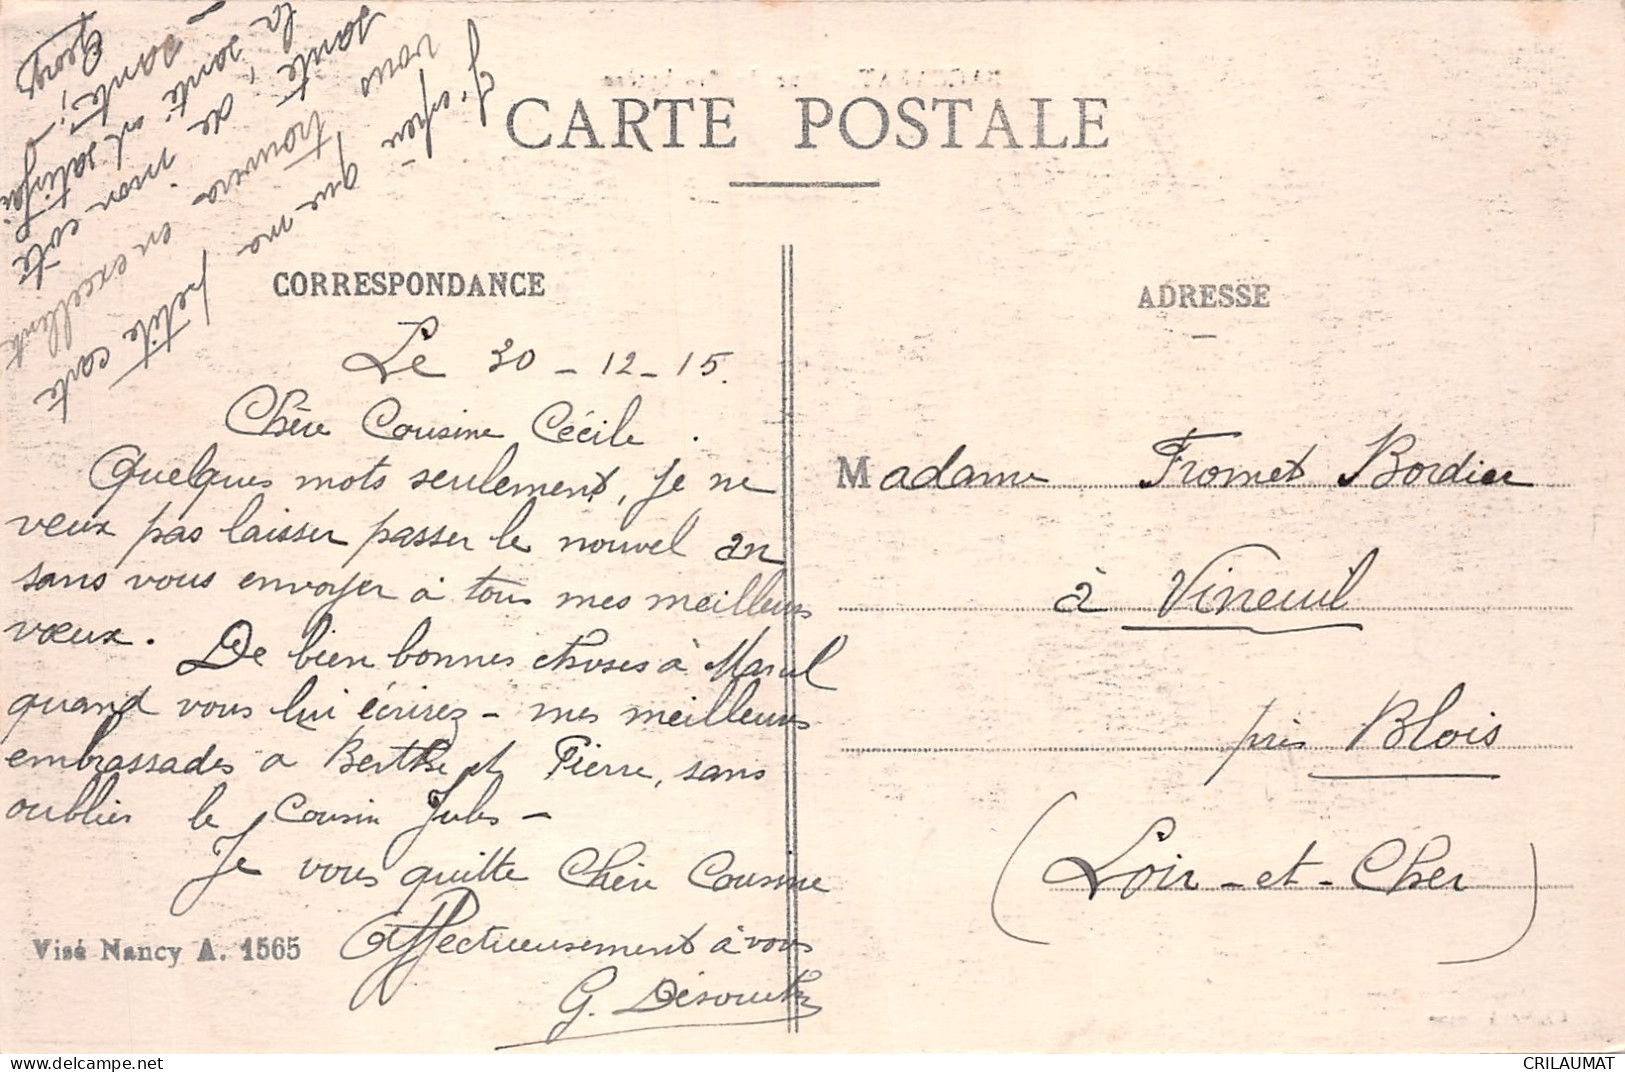 CARTE POSTALE
CORRESPONDANCE
Le 30 - 12 - 15.
Chère Cousine Cécile.
Quelques mots seulement, je ne
veux pas laisser passer le nouvel an
sans vous envoyer à tous mes meilleurs
vœux. De bien bonnes choses à Marcel
quand vous lui écrirez - mes meilleurs
embrassades a Berthe et Pierre, sans
oublier le cousin Jules -
Je vous quitte Chère Cousine
Affectueusement à vous
G.
Visé Nancy A. 1565
J'espère que ma petite carte
vous trouvera en excellente
santé, de mon côté
la santé est satisfai
sante,
Georges
ADRESSE
Madame Fromet Bordier
à Vineuil
près Blois
(Loir-et-Cher)
CRILAUMAT